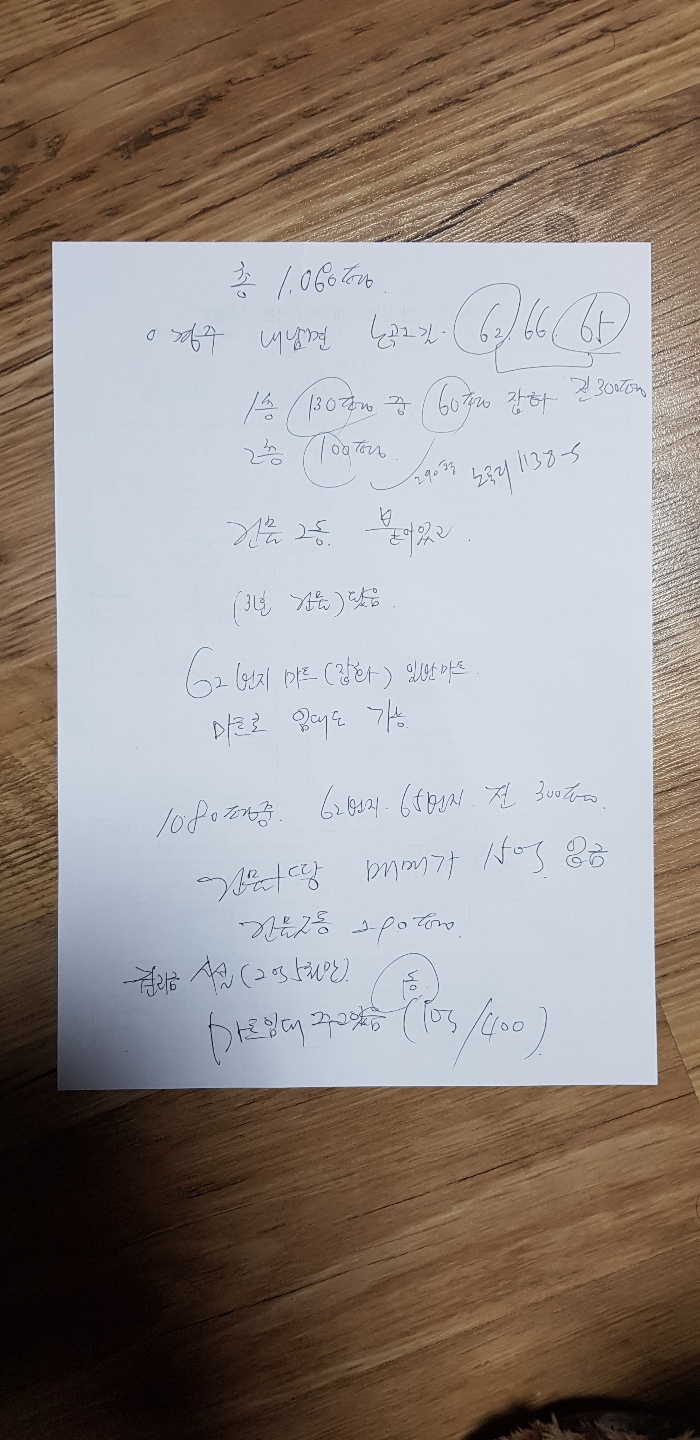 총 1.060평
○ 경주 내남면 62. 66. 65
1층 130평 중 60평 잡화 전 300평
2층 100평. 290평 노곡리 1138-5
건물 2동. 붙어있고.
(3년 건물) 됐음.
62번지 마트(잡화) 일반마트.
마트로 임대도 가능
1080평중. 62번지. 65번지. 전 300평.
건물+땅 매매가 15억. 융금
건물2동 290평.
권리금 시설(2억5천만).
마트임대 주고있음 중 (1억/400).